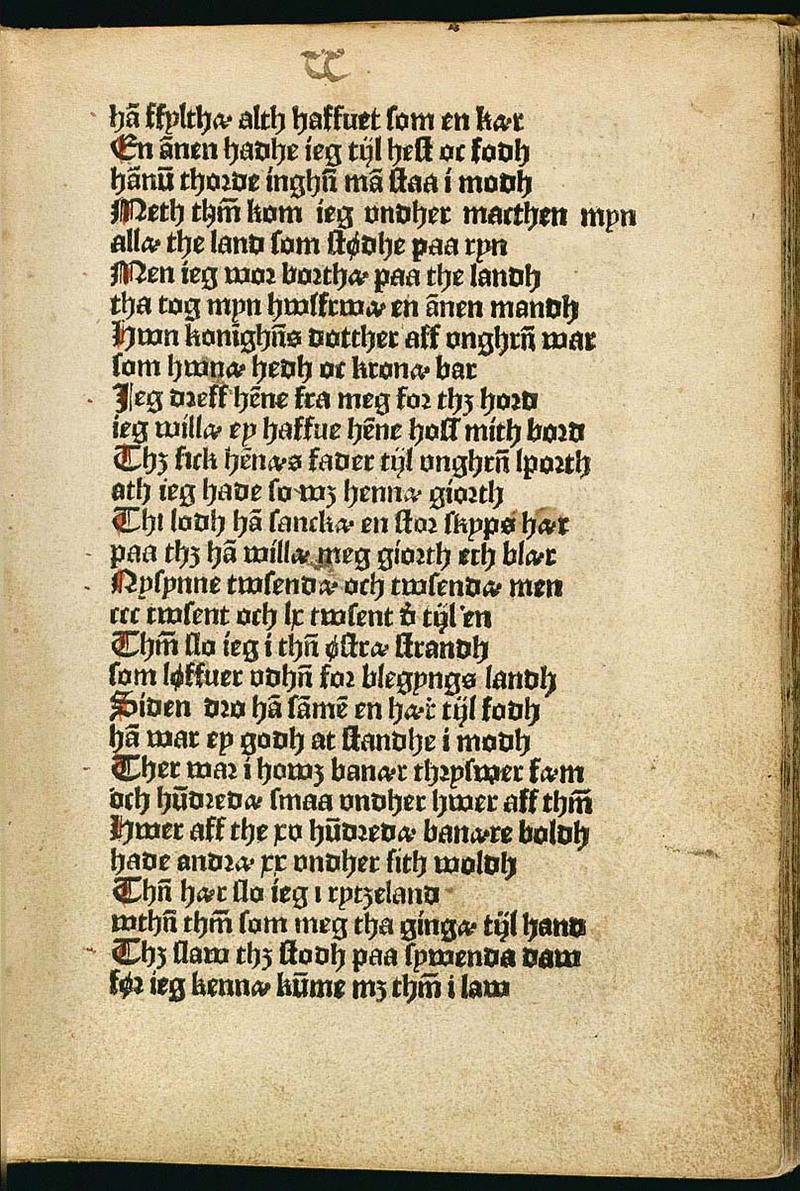 hā ffylthæ alth haffuet som en kær
En ānen hadhe ieg tijl hest oc fodh
hānū thorde inghn̄ mā staa i modh
Meth thm̄ kom ieg vndher macthen myn
allæ the land som stødhe paa ryn
Men ieg wor borthæ paa the landh
tha tog myn hwsfrwæ en ānen mandh
Hwn konīghn̄s dotther aff vnghrn̄ war
som hwnæ hedh oc kronæ bar
Jeg dreff hēne fra meg for thꝫ hord
ieg willæ ey haffue hēne hoss mith bord
Thꝫ fick hēnæs fader tijl vnghrn̄ sporth
ath ieg hade so wꝫ hennæ giorth
Thi lodh hā sanckæ en stor skyps hær
paa thꝫ hā willæ meg giorth eth blær
Nysynne twsendæ och twsendæ men
ccc twsent och lx twsent d̄ tijl en
Thm̄ slo ieg i thn̄ østræ strandh
som løffuer vdhn̄ for blegyngs landh
Siden dro hā sāmē en hær tijl fodh
hā war ey godh at standhe i modh
Ther war i howꝫ banær thryswer fæm
och hūdredæ smaa vndher hwer aff thm̄
Hwer aff the xv hūdredæ banære boldh
hade andræ xx vndher sith woldh
Thn̄ hær slo ieg i rytzeland
wthn̄ thm̄ som meg tha gingæ tijl hand
Thꝫ slaw thꝫ stodh paa sywenda daw
før ieg kennæ kūme mꝫ thm̄ i law